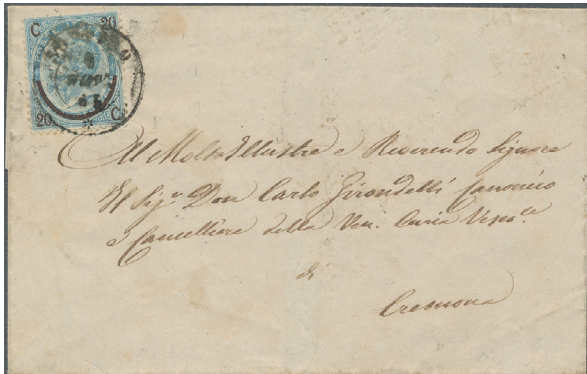 C 20
20 C
All Molto Illustre e Reverendo Signore
Il Sig.r Don Carlo Girondelli Canonico
e Cancelliere della Ven. Curia Vesc.le
di
Cremona